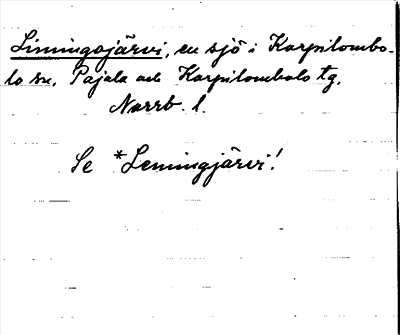 Limingojärvi, en sjö i Karpilombo-
lo sn, Pajala och Korpilombolo tg,
Norrb. l.
Se *Lemingjärvi!